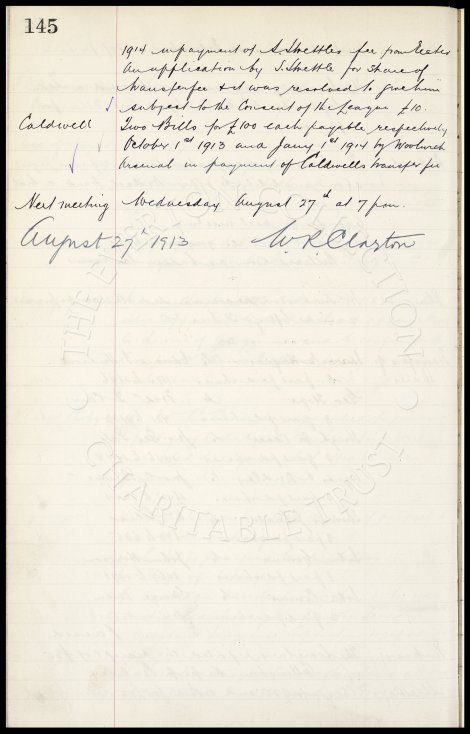 145
1914 in payment of S. Strettles fee from Exeter
An application by S. Strettle for share of
transfer fee & it was resolved to give him
subject to the Consent of the League £10.
Caldwell Two Bills for £100 each payable respectively
October 1st 1913 and Jany 1st 1914 by Woolwich
Arsenal in payment of Caldwells transfer fee
Next meeting Wednesday August 27th at 7 pm.
August 27th 1913 W.R. Clayton
THE EVERTON COLLECTION
CHARITABLE TRUST